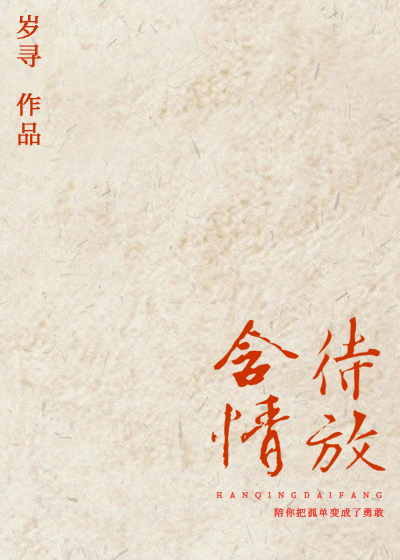 岁寻 作品
含情
待放
HANQINGDAIFANG
陪你把孤单变成了勇敢